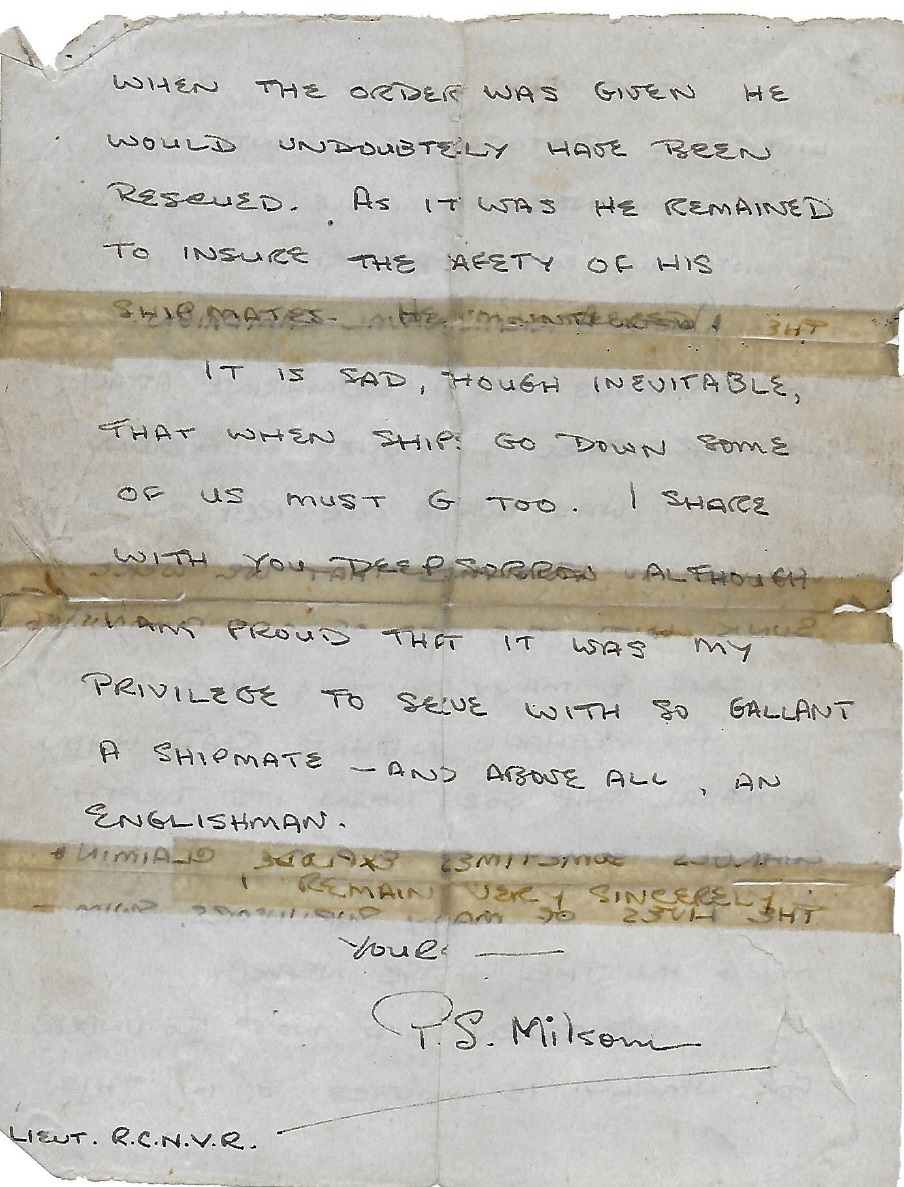 WHEN THE ORDER WAS GIVEN HE
WOULD UNDOUBTELY HAVE BEEN
RESCUED. AS IT WAS HE REMAINED
TO INSURE THE AFETY OF HIS
SHIPMATES. HE
IT IS SAD, HOUGH INEVITABLE,
THAT WHEN SHIP: GO DOWN SOME
OF US MUST G TOO. I SHARE
WITH YOU DEEP SORROW ALTHOUGH
I AM PROUD THAT IT WAS MY
PRIVILEGE TO SEVE WITH SO GALLANT
A SHIPMATE – AND ABOVE ALL, AN
ENGLISHMAN.
I REMAIN VERY SINCERELY
YOUR: —
P.S. Milsom
LIEUT. R.C.N.V.R.